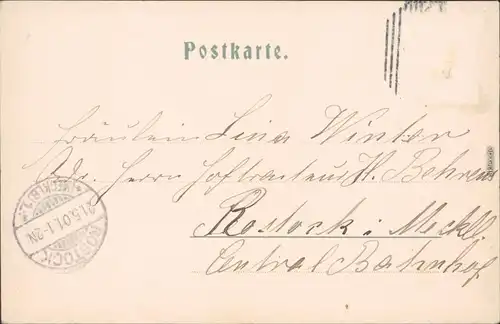 Postkarte.
Fräulein Lina Winter
Adr. Herrn Hofrestaurateur H. Behrens
Rostock i. Meckl.
Central Bahnhof
ROSTOCK
21.5.01.1-2N